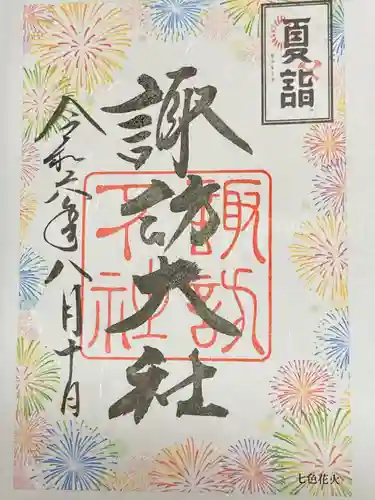 夏詣
諏訪大社
諏訪大社
令和六年八月十日
七色花火